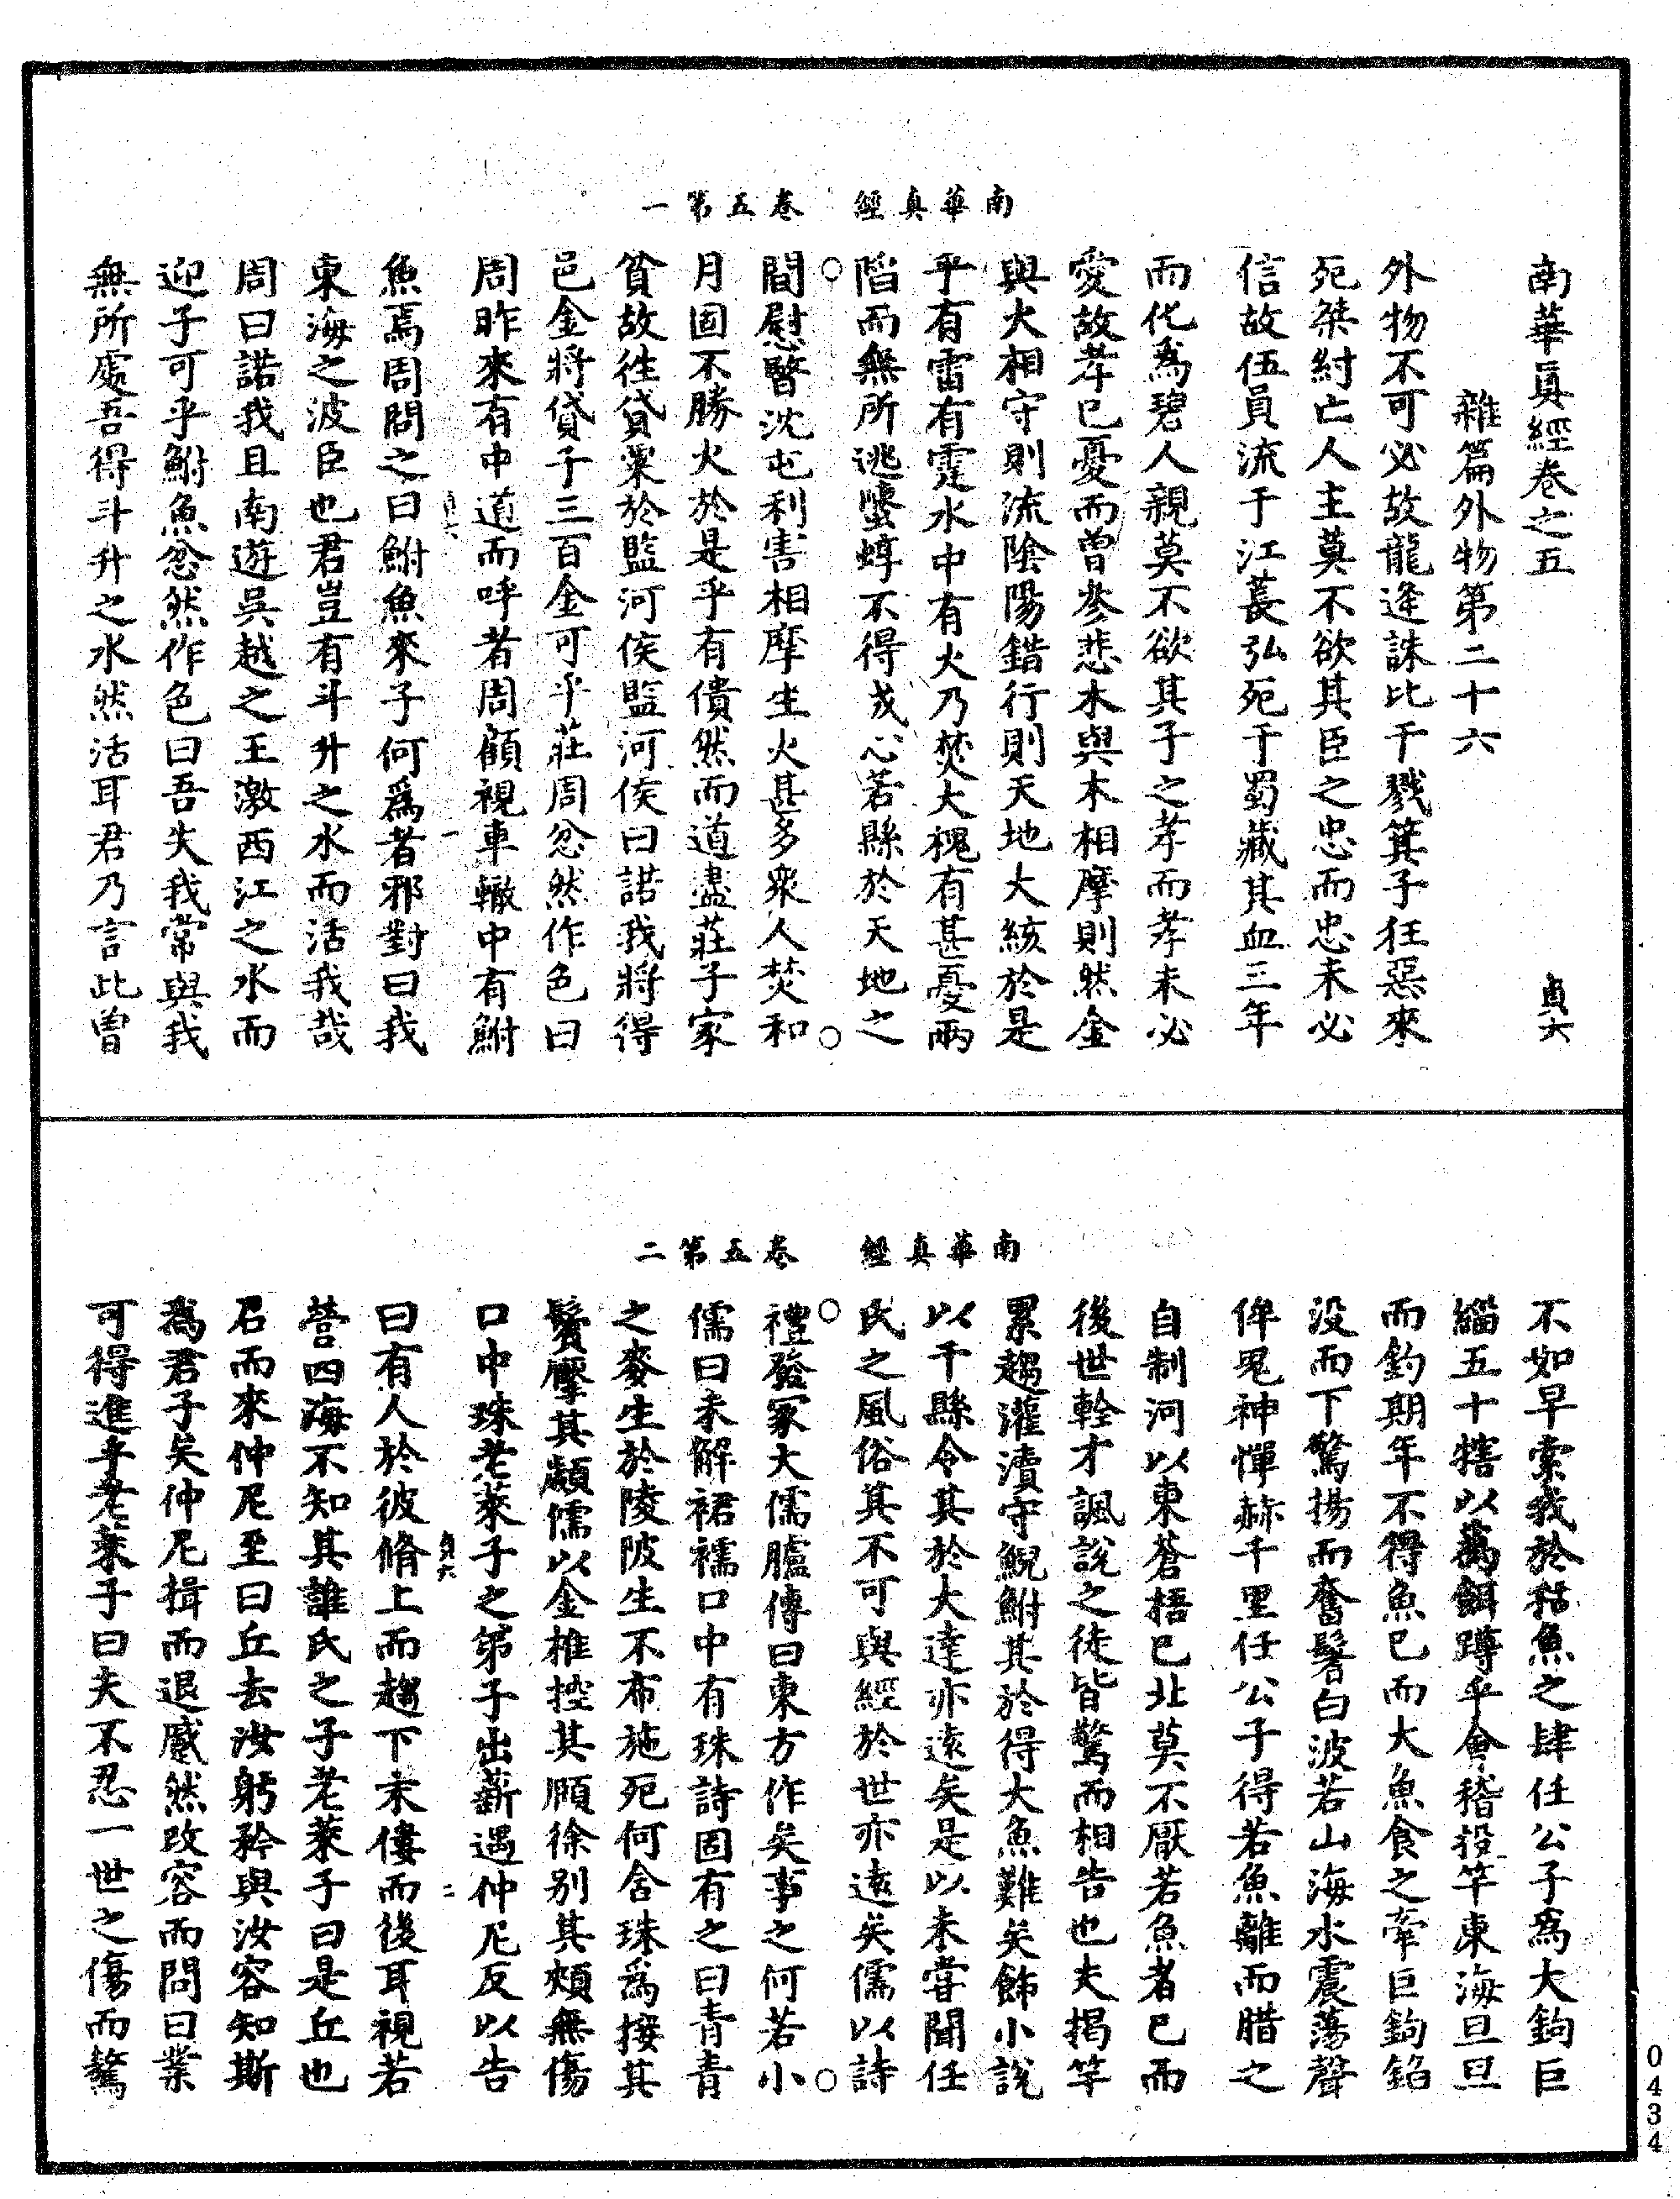 南華真經　卷五第一
南華真經卷之五　貞六
雜篇外物第二十六
外物不可必故龍逢誅比干戮箕子狂惡來
死桀紂亡人主莫不欲其臣之忠而忠未必
信故伍員流于江萇弘死于蜀藏其血三年
而化爲碧人親莫不欲其子之孝而孝未必
愛故孝已憂而曾參悲木與木相摩則然金
與火相守則流陰陽錯行則天地大絃於是
乎有雷有霆水中有火乃焚大槐有甚憂兩
陷而無所逃螴蜳不得成心若縣於天地之
間慰暋沈屯利害相摩生火甚多衆人焚和
月固不勝火於是乎有僓然而道盡莊子家
貧故往貸粟於監河侯監河侯曰諾我將得
邑金將貸子三百金可乎莊周忿然作色曰
周昨來有中道而呼者周顧視車轍中有鮒
貞六　一
魚焉周問之曰鮒魚來子何爲者邪對曰我
東海之波臣也君豈有斗升之水而活我哉
周曰諾我且南遊吳越之王激西江之水而
迎子可乎鮒魚忿然作色曰吾失我常與我
無所處吾得斗升之水然活耳君乃言此曾
南華真經　卷五第二
不如早索我於枯魚之肆任公子爲大鉤巨
緇五十犗以爲餌蹲乎會稽投竿東海旦旦
而釣期年不得魚已而大魚食之牽巨鉤錎
没而下驚揚而奮鬐白波若山海水震蕩聲
侔鬼神憚赫千里任公子得若魚離而腊之
自制河以東蒼梧已北莫不厭若魚者已而
後世輇才諷說之徒皆驚而相告也夫揭竿
累趨灌瀆守鯢鮒其於得大魚難矣飾小說
以干縣令其於大達亦遠矣是以未甞聞任
氏之風俗其不可與經於世亦遠矣儒以詩
禮發冢大儒臚傳曰東方作矣事之何若小
儒曰未解裙襦口中有珠詩固有之曰青青
之麥生於陵陂生不布施死何含珠爲接其
鬢擪其顪儒以金椎控其頤徐别其頰無傷
口中珠老萊子之弟子出薪遇仲尼反以告
貞六　二
曰有人於彼脩上而趨下末僂而後耳視若
營四海不知其誰氏之子老萊子曰是丘也
召而來仲尼至曰丘去汝躬矜與汝容知斯
爲君子矣仲尼揖而退蹙然改容而問曰業
可得進乎老萊子曰夫不忍一世之傷而驁
0434